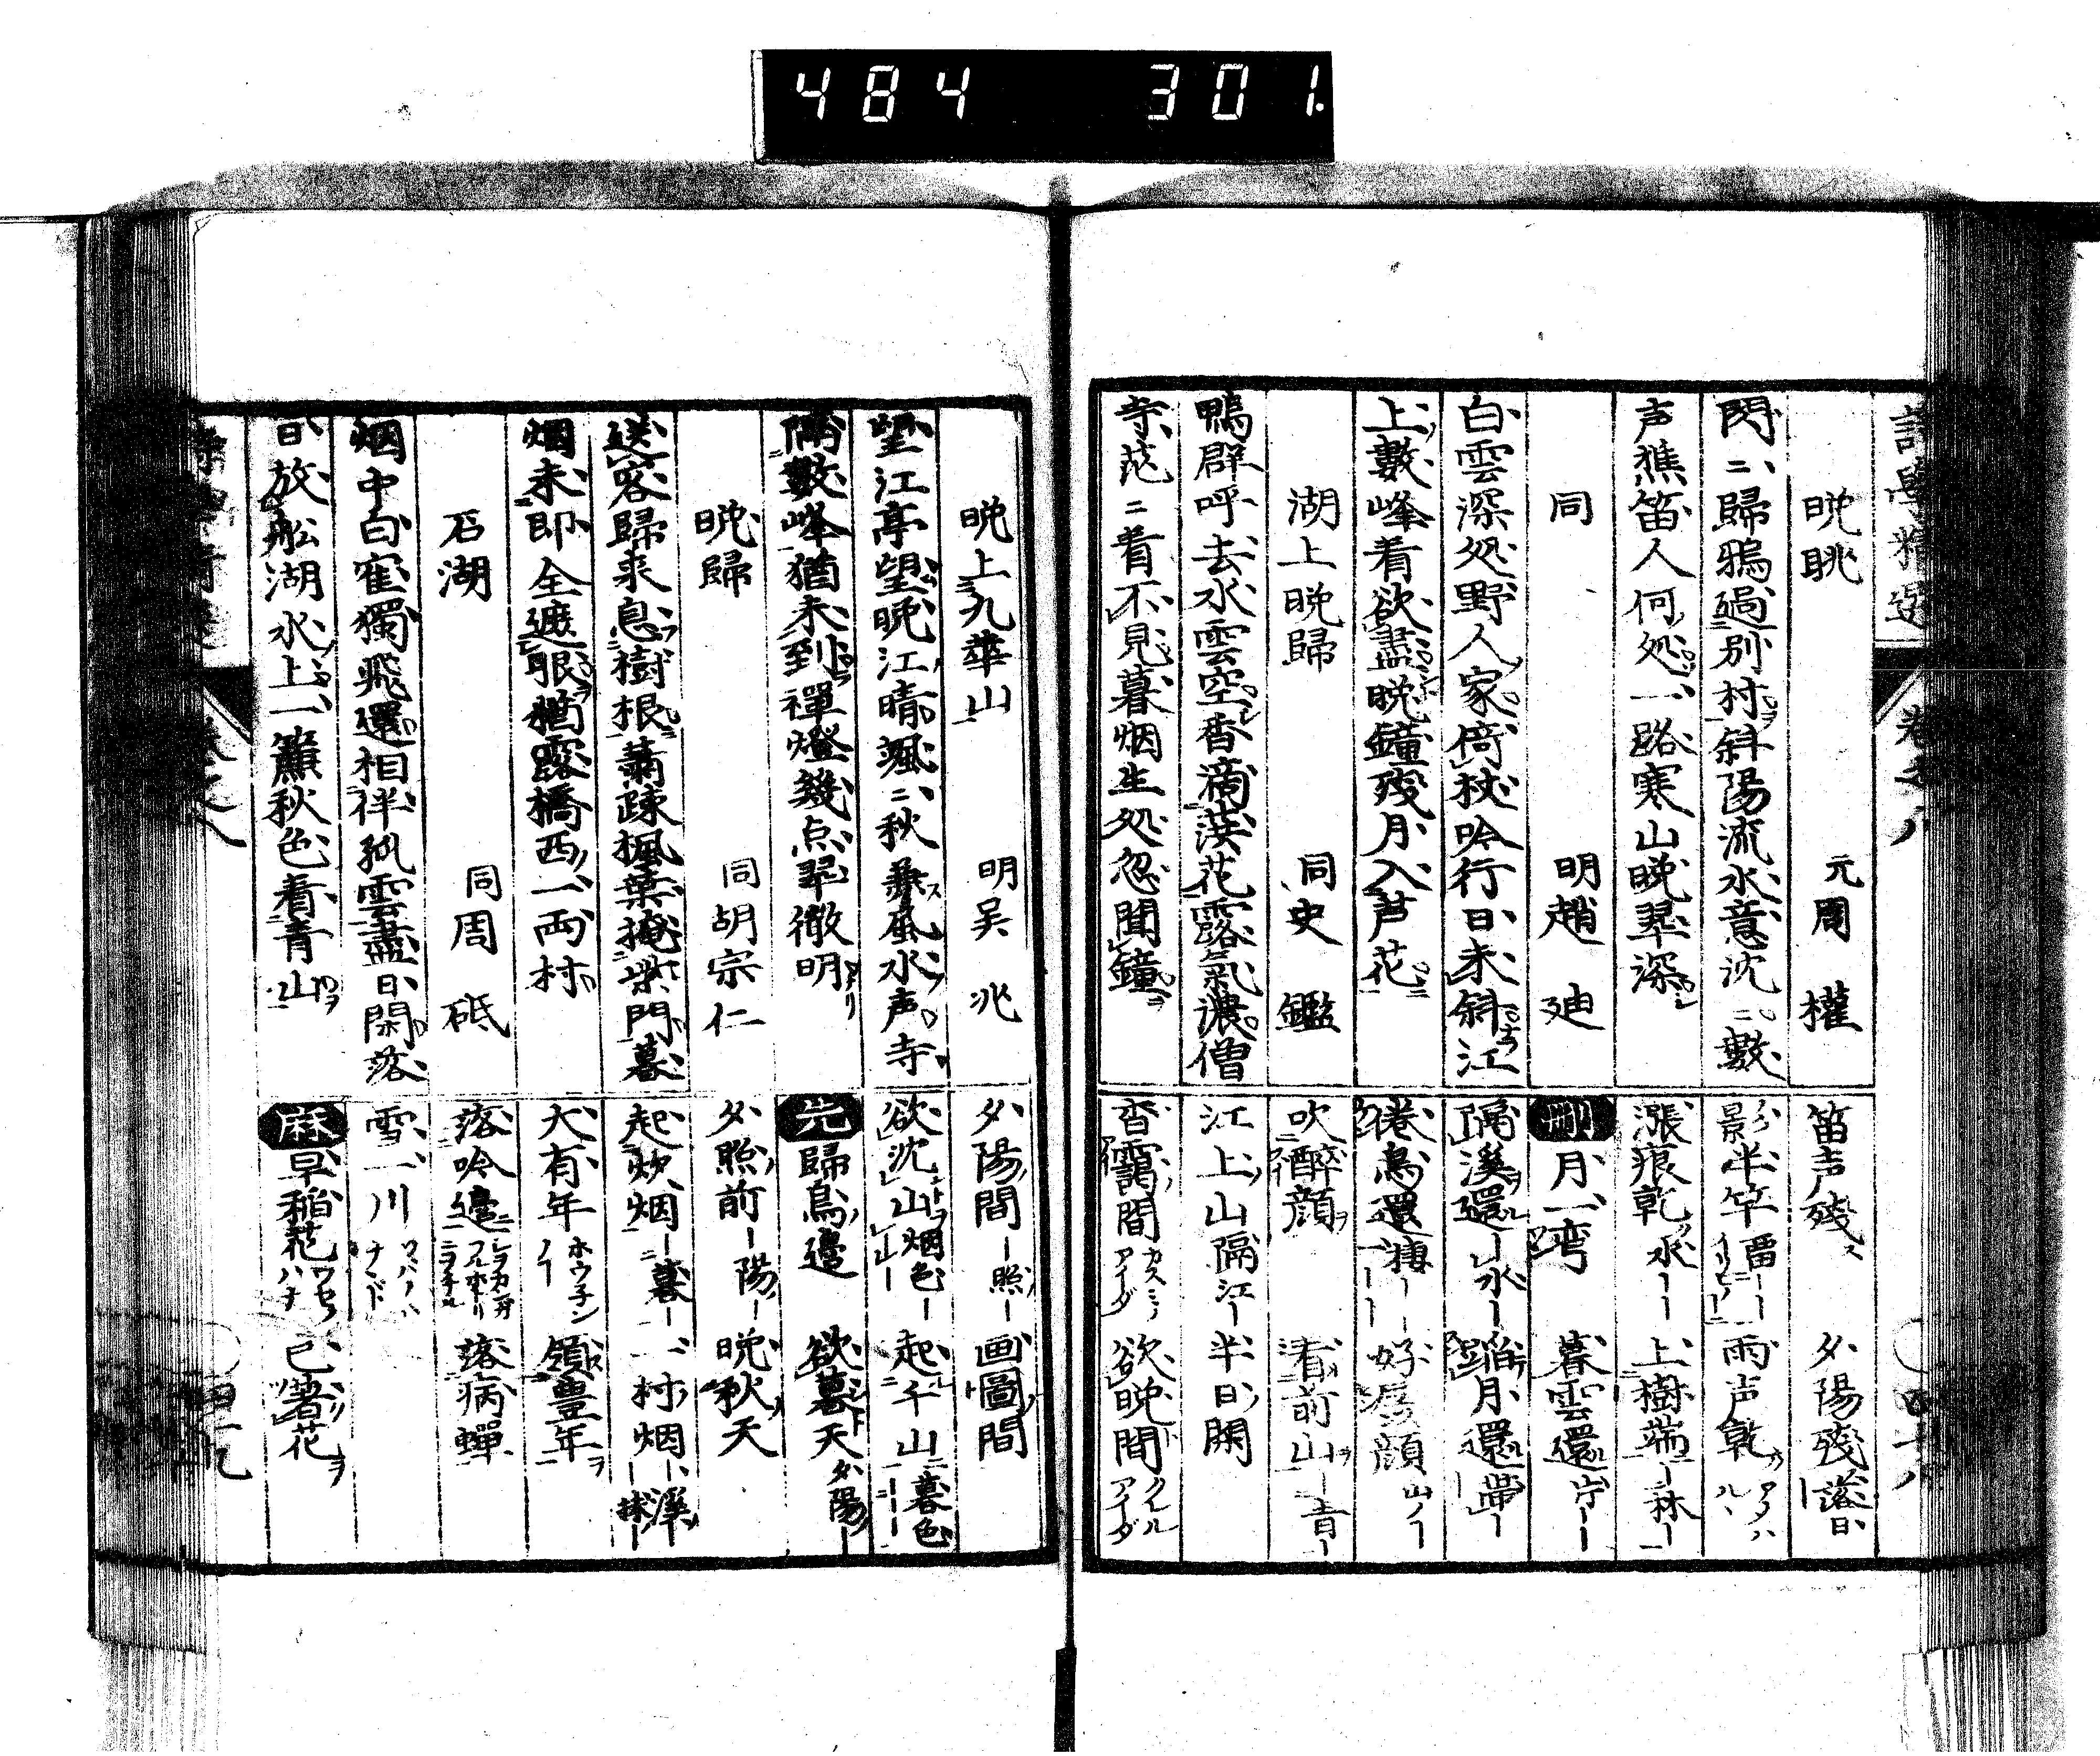 484 301
晩眺 元周權
閃二歸鴉過別村斜陽流水意沈二數
声樵笛人何処一路寒山晩翠深
同 明趙廸
白雲深処野人家倚杖吟行日未斜江
上數峰看欲盡晩鐘殘月入芦花
湖上晩歸 同史鑑
鴨群呼去水雲空香滴渓花露氣濃僧
寺茫二看不見暮烟生処忽聞鐘
笛声殘ス 夕陽殘 落日
影半竿 雨声乾
漲痕乾 水 上樹端 林
刪月一湾 暮雲還
隔溪還 水 蹈月還 帶
倦鳥還 棲 好孱顔 山ノ
吹醉顔 看前山 青
江上山 隔江 半日閑
杳靄間 カスミノアイダ 欲晩間 クルルアイダ
晩上九華山 明吴兆
望江亭望晩江晴颯二秋兼風水声寺
隔數峰猶未到禪燈幾点翠微明
晩歸 同胡宗仁
送客歸来息樹根蕭疎楓葉掩柴門暮
烟未即全遮眼猶露橋西一両村
石湖 同周砥
烟中白隺獨飛還相伴孤雲盡日閑落
日放舩湖水上一簾秋色看青山
夕陽間 照 画圖間
欲沈山 烟色 起千山 暮色
先歸鳥邊 欲暮天 夕陽
夕照前 陽 晩秋天
起炊烟 暮 一村烟 溪 林
大有年 ホウネンノ 領豊年
落吟邊 落病蟬
雪一川
麻早稲花 ワセノハナ 已着花